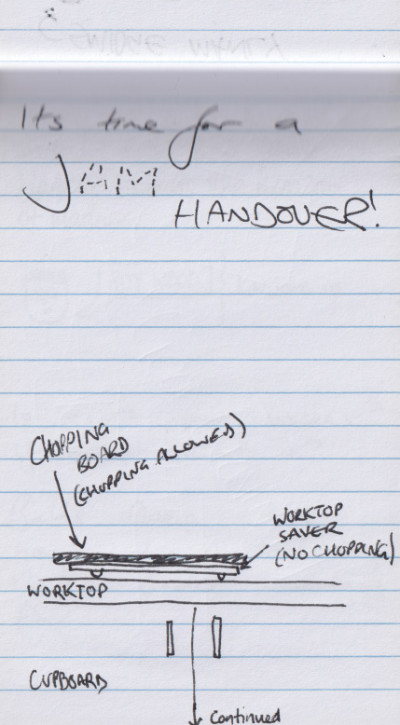 Its time for a
JAM
HANDOVER!
CHOPPING
BOARD
(CHOPPING ALLOWED)
WORKTOP
SAVER
(NO CHOPPING)
WORKTOP
CUPBOARD
Continued